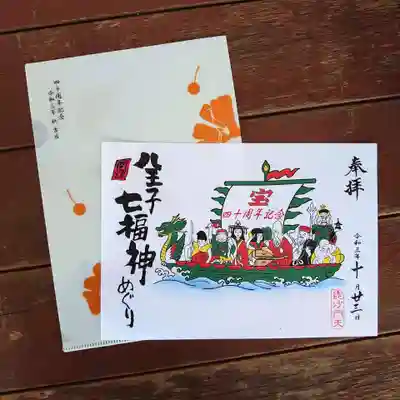 四十周年記念
令和三年 秋 吉日
奉拝
令和三年十月廿三日
毘沙門天
宝
四十周年記念
八王子
七福神
めぐり